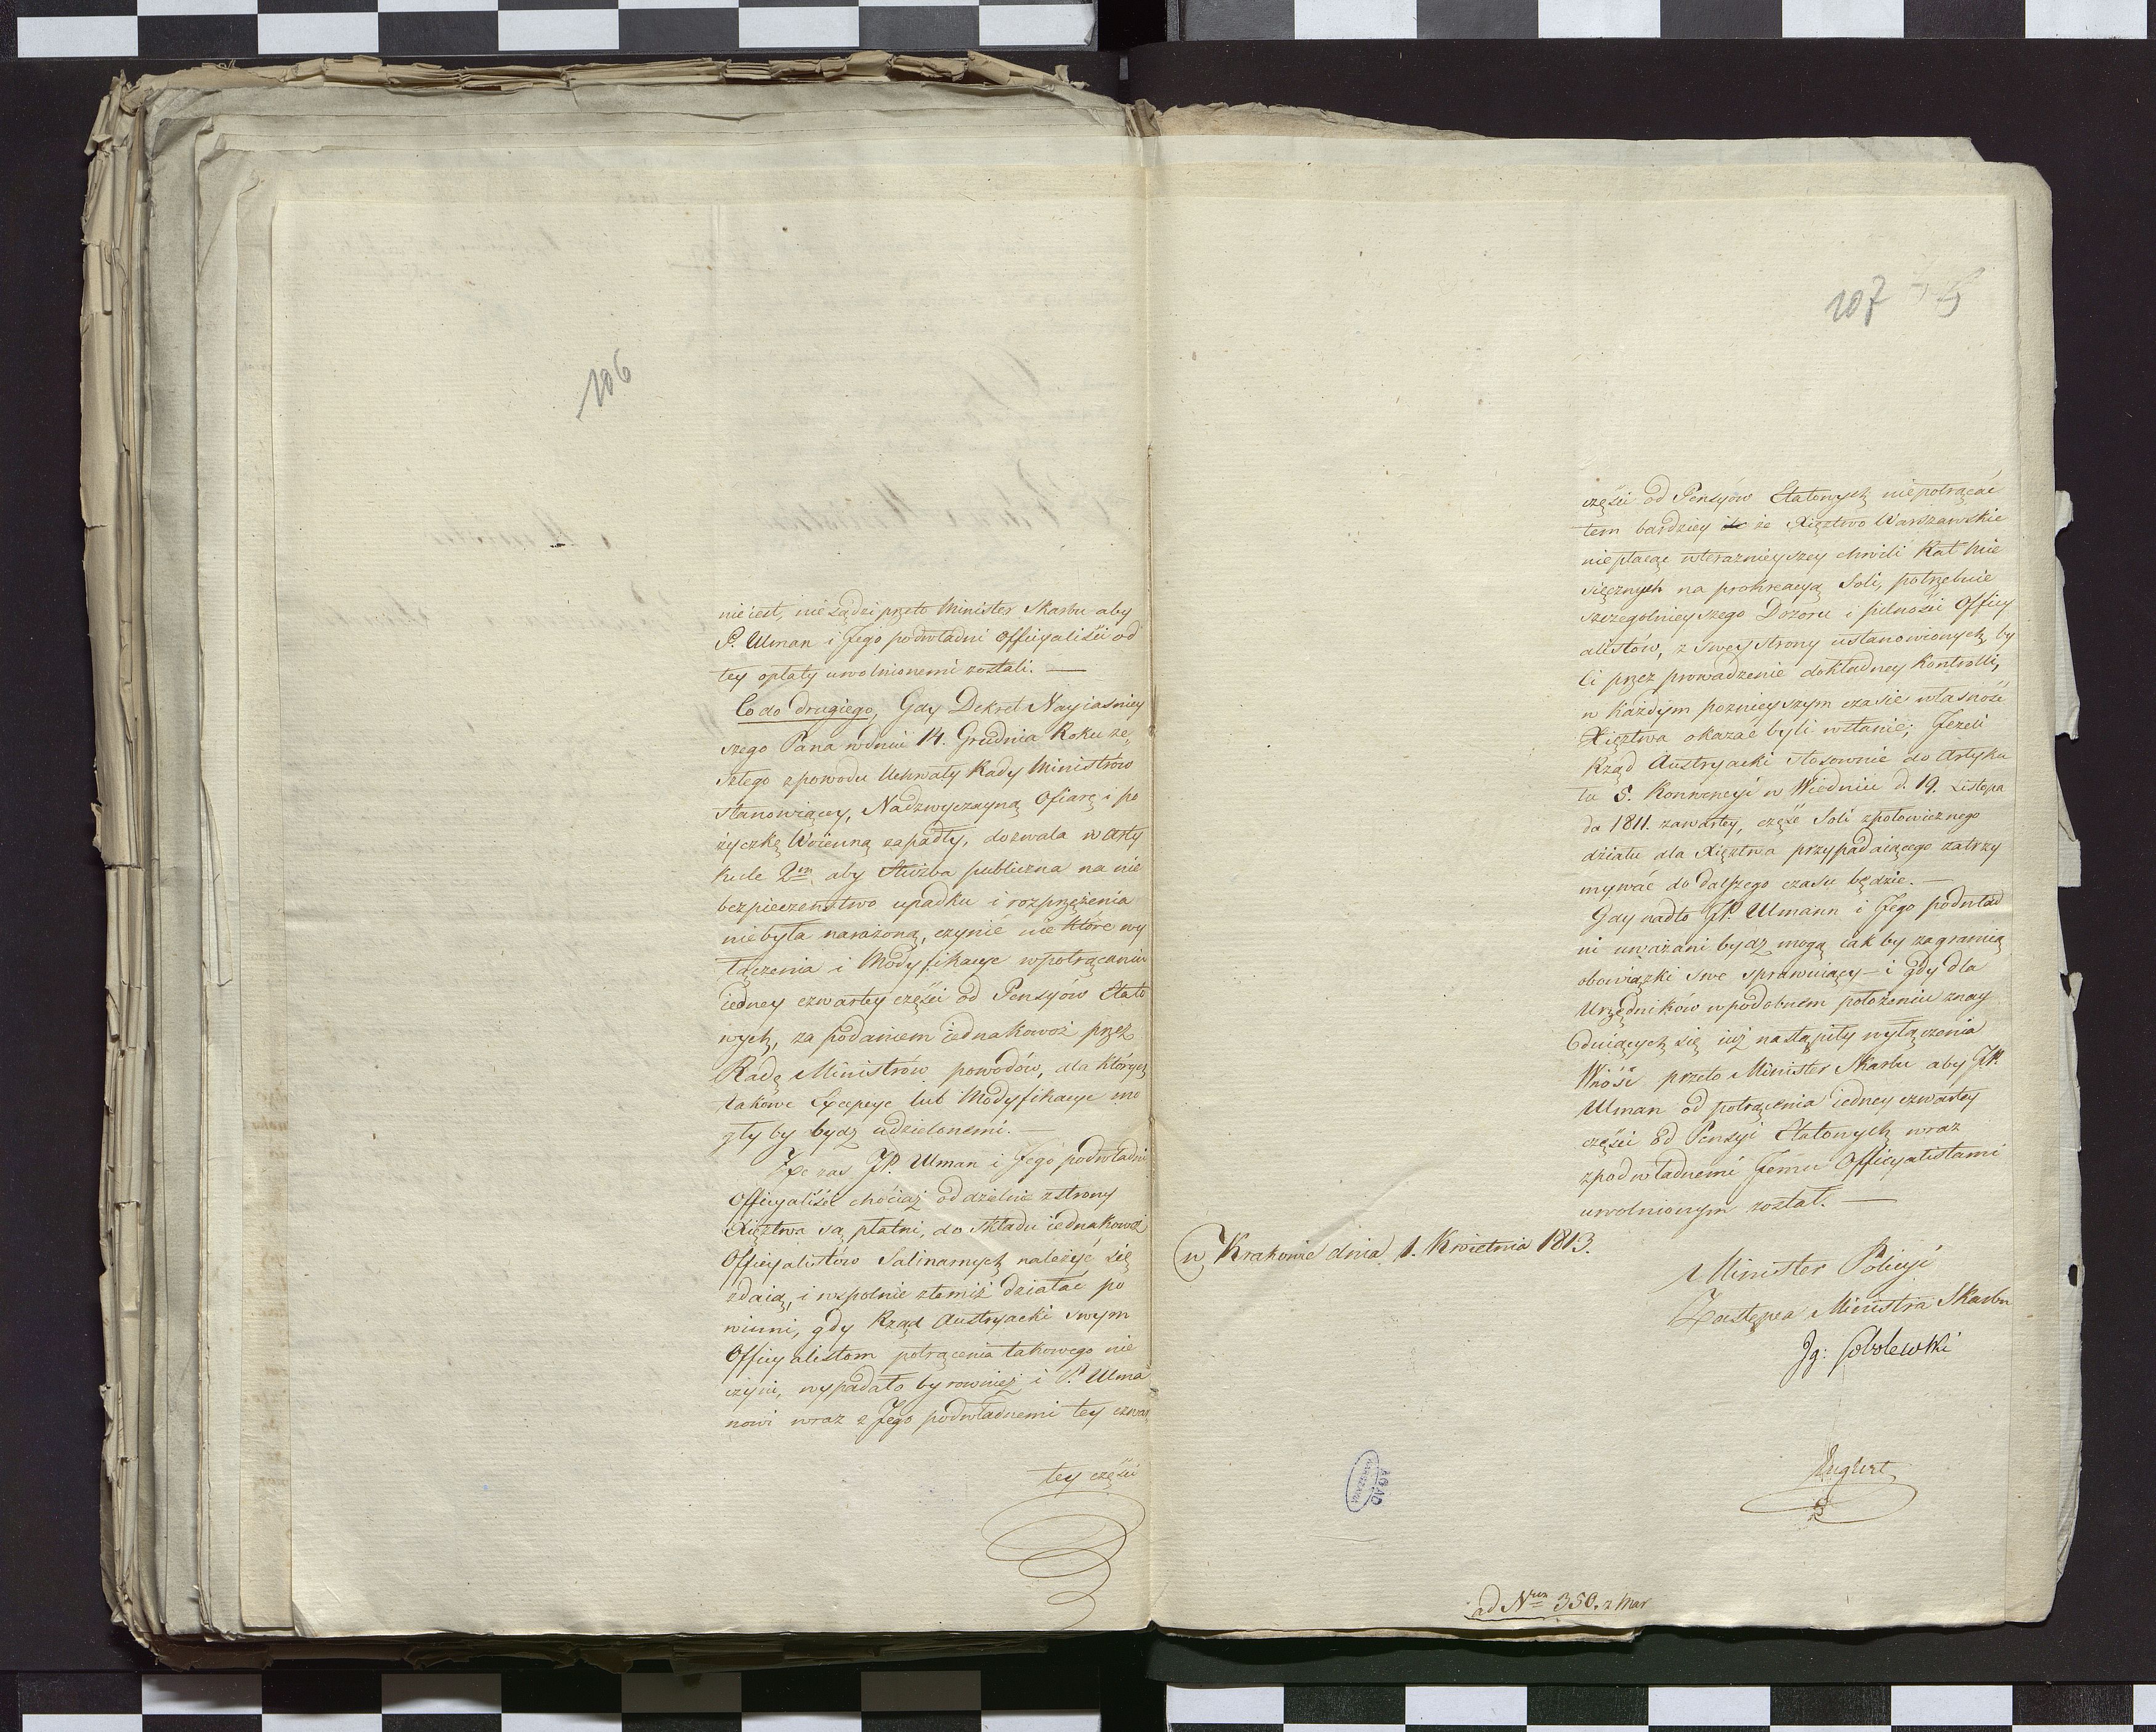 106
nie iest, nie sądzi przeto Minister Skarbu aby
P. Ulman i Jego podwładni officyaliści od
tey opłaty uwolnionemi zostali. —
Co do drugiego, Gdy Dekret Nayiaśniey
szego Pana w dniu 14. Grudnia Roku ze„
szłego z powodu Uchwały Rady Ministrów
stanowiącey, Nadzwyczayną Ofiarę i po
życzkę Woienną zapadły, dozwala w Arty
kule 2m aby Służba publiczna na nie
bezpieczenstwo upadku i rozprzężenia
niebyła narażoną, czynić nie które wy
łączenia i Modyfikacye w potrącaniu
iedney czwartey części od Pensyów Etato
wych, za podaniem iednakowoż przez
Radę Ministrów powodów, dla których
takowe Excepcye lub Modyfikacye mo
gły by bydź udzielonemi. —
Że zaś JP. Ulman i Jego podwładni
Officyaliści chociaż oddzielnie z strony
Xięztwa są płatni, do składu iednakowoż
Officyalistów Salinarnych należyć się
zdaią, i wspolnie z temiż działać po
winni, gdy Rząd Austryacki swym
Officyalistom potrącenia takowego nie
czyni, wypadało by rownież i P. Ulma
nowi wraz z Jego podwładnemi tey czwar
tey części
107
części od Pensyów Etatowych niepotrącać
tem bardziey że Xięztwo Warszawskie
niepłacąc w teraznieyszey chwili Rat mie
sięcznych na prokreacyą Soli, potrzebuie
szczegolnieyszego Dozoru i pilności Officy
alistów, z swey strony ustanowionych, by
ci przez prowadzenie dokładney Kontrolli,
w każdym poznieyszym czasie własność
Xięztwa okazać byli w stanie; Jeżeli
Rząd Austryacki stosownie do Artyku
łu 5. Konwencyi w Wiedniu d. 19. Listopa
da 1811. zawartey, część Soli z połowicznego
działu dla Xięztwa przypadaiącego zatrzy
mywać do dalszego czasu będzie. —
Gdy nadto JP. Ulmann i Jego podwład
ni uważani bydz mogą iak by za granicą
obowiązki swe sprawuiący — i gdy dla
Urzędników w podobnem położeniu znay
duiących się iuż nastąpiły wyłączenia
Wnosi przeto Minister Skarbu aby JP.
Ulman od potrącenia iedney czwartey
części od Pensyi Etatowych wraz
z podwładnemi Jemu Officyalistami
uwolnionym został. —
w Krakowie dnia 1. Kwietnia 1813.
Minister Policyi
Zastępca Ministra Skarbu
Ig: Sobolewski
Englert
AGAD
WARSZAWA
ad Nrum 350. z Mar